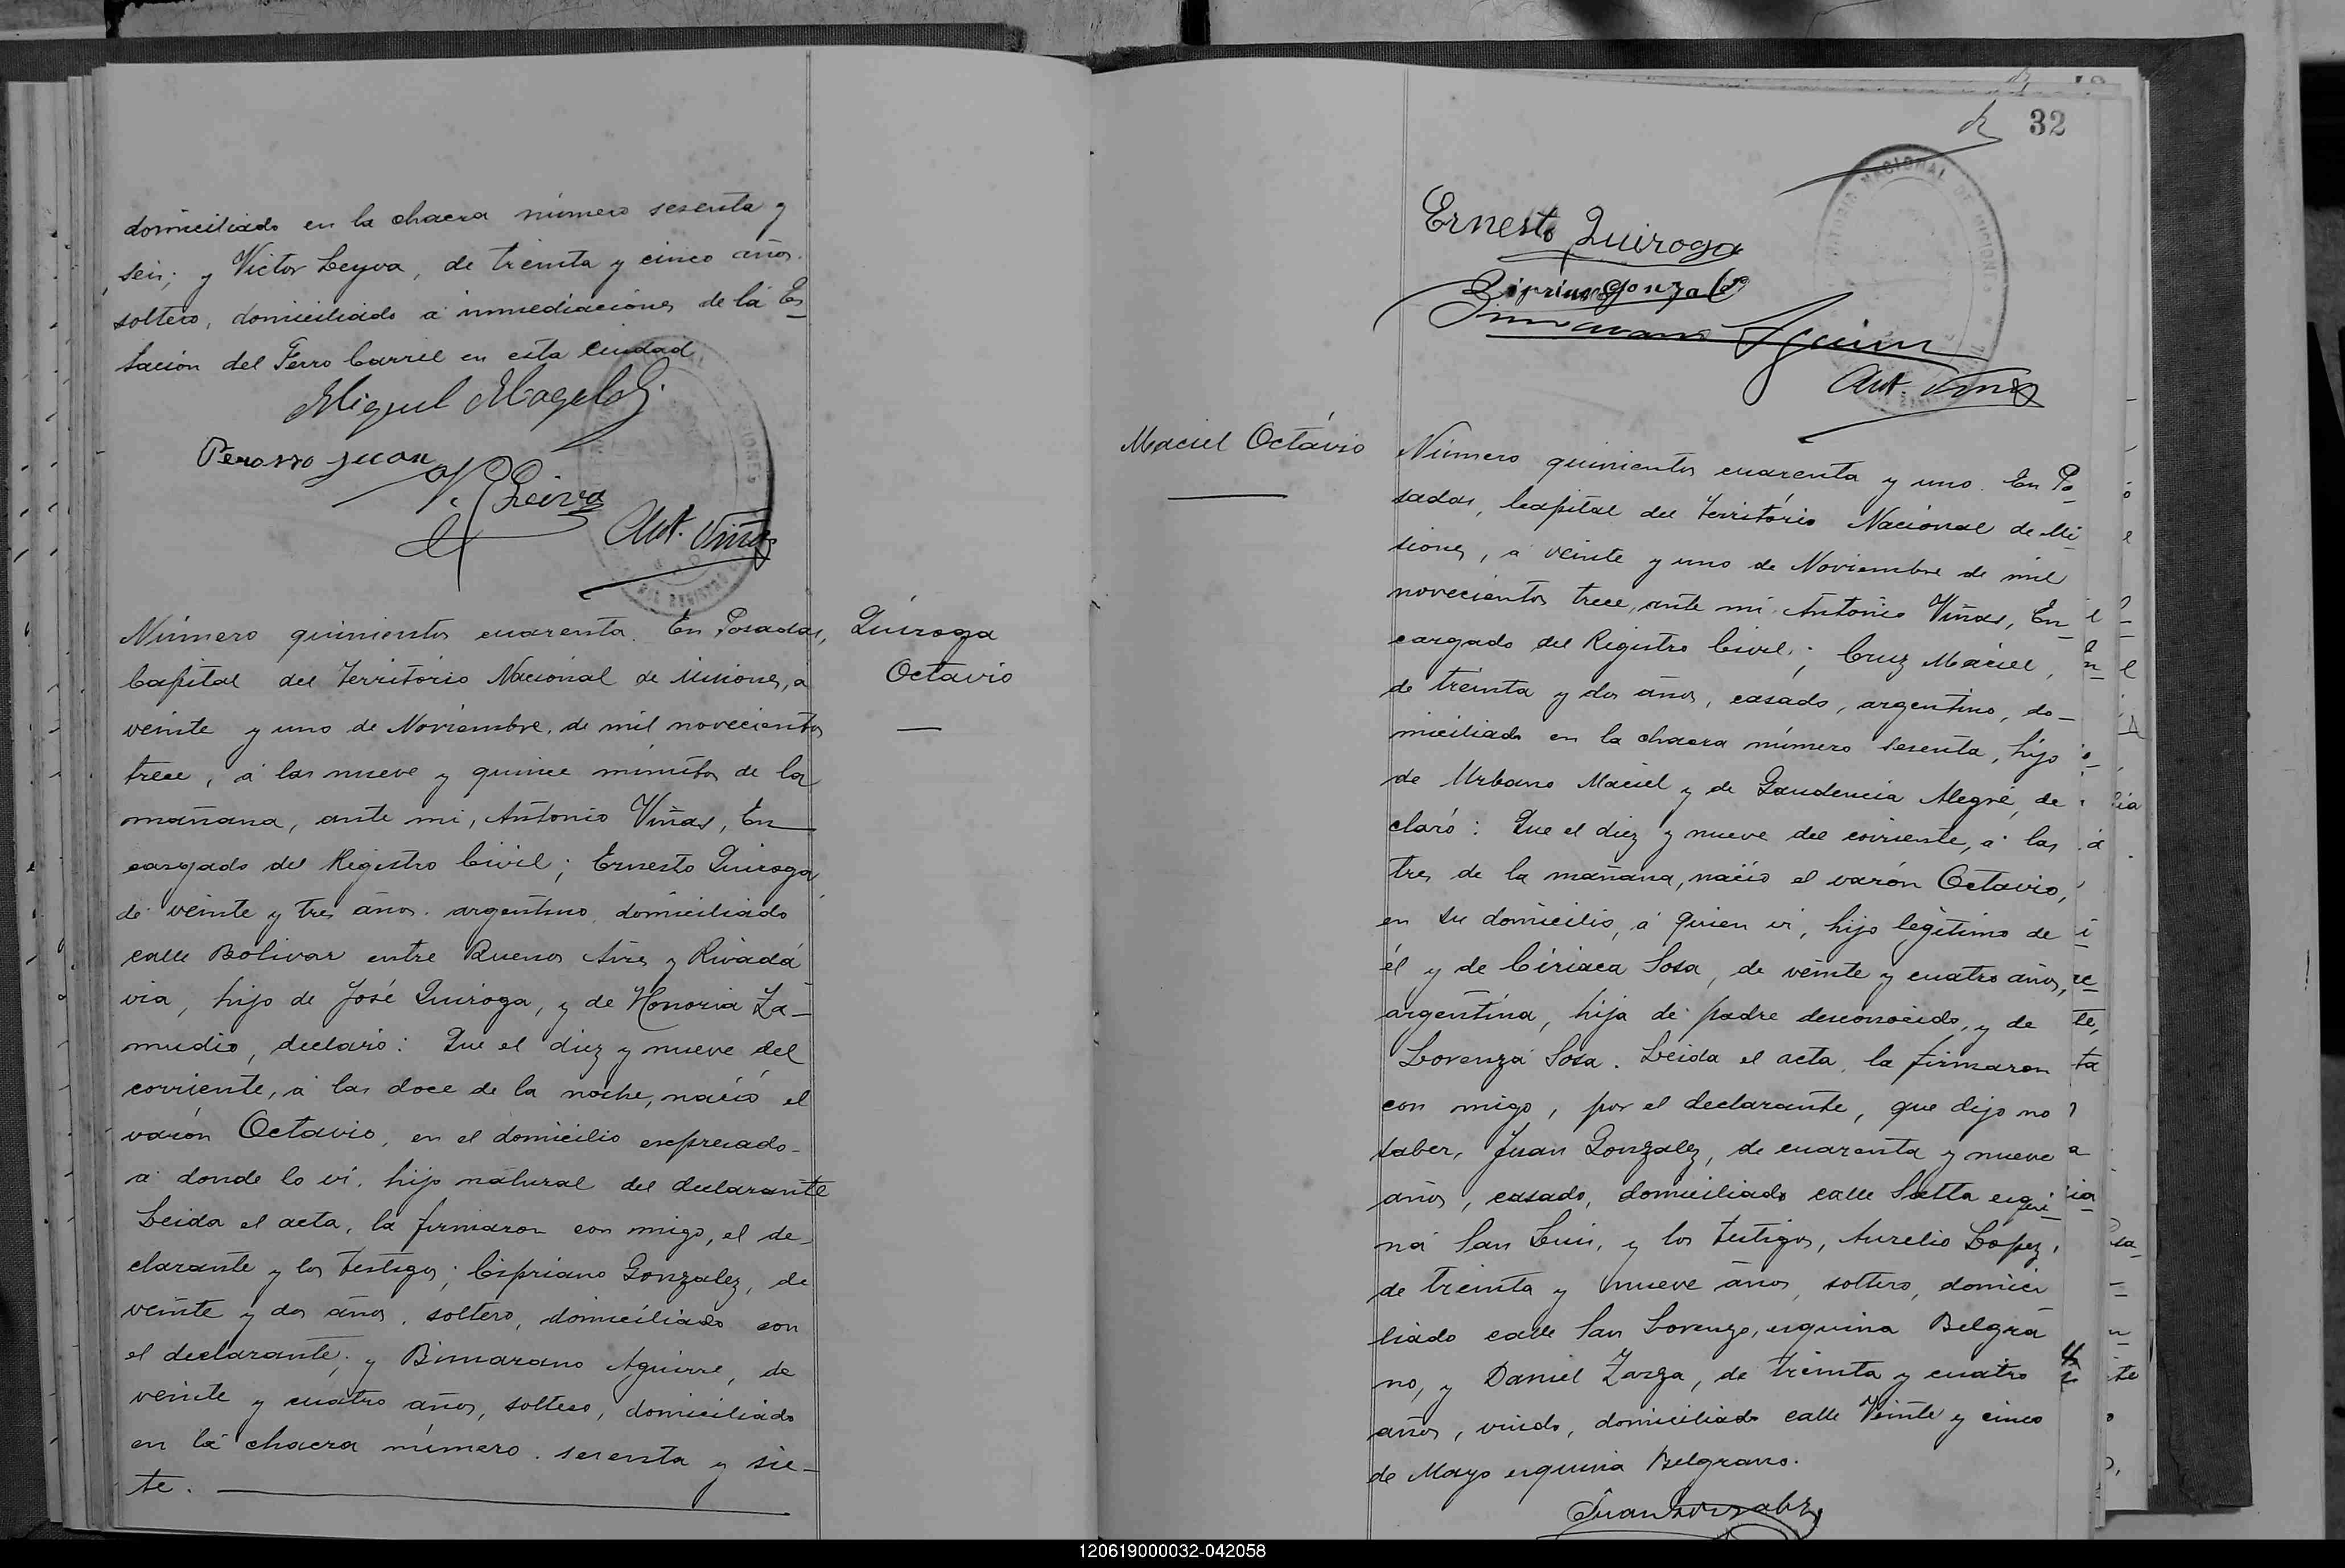 domiciliado en la chacra número sesenta y
seis; y Victor Leyva, de treinta y cinco años.
soltero, domiciliado á inmediaciones de la Es
tación del Ferro Carril en esta Ciudad
Miguel
Perasso Juan
V. Leiva
Ant. Viñas
Quiroga
Octavio
Número quinientos cuarenta. En Posadas,
Capital del Territorio Nacional de Misiones, a
veinte y uno de Noviembre, de mil novecientos
trece, á las nueve y quince minutos de la
mañana, ante mi, Antonio Viñas, En
cargado del Registro Civil; Ernesto Quiroga
de veinte y tres años. argentino, domiciliado
calle Bolivar entre Buenos Aires y Rivada
via, hijo de José Quiroga, y de Honoria Za-
mudio, declaró: Que el diez y nueve del
corriente, á las doce de la noche, nació el
varón Octavio, en el domicilio expresado-
a donde lo vi. hijo natural del declarante
Leida el acta, la firmaron con migo, el de-
clarante y los testigos; Cipriano Gonzalez, de
veinte y dos años, soltero, domiciliado con
el declarante; y Bimarano Aguirre, de
veinte y cuatro años, soltero, domiciliado
en la chacra número sesenta y sie-
te.
32
Ernesto Quiroga
Cipriano Gonzalez
Aguirre
Ant. Viñas
Maciel Octavio
Número quinientos cuarenta y uno. En Po
sadas, Capital del Territorio Nacional de Mi
siones, a veinte y uno de Noviembre de mil
novecientos trece, ante mi Antonio Viñas, En
cargado del Registro Civil; Cruz Maciel,
de treinta y dos años, casado, argentino, do-
miciliado en la chacra número sesenta, hijo
de Urbano Maciel y de Gaudencia Alegre, de
claró: Que el diez y nueve del corriente, á las
tres de la mañana, nació el varón Octavio,
en su domicilio, á quien vi, hijo legitimo de
él y de Ciriaca Sosa, de veinte y cuatro años,
argentina, hija de padre desconocido, y de
Lorenza Sosa. Leida el acta, la firmaron
con migo, por el declarante, que dijo no
saber, Juan Gonzalez, de cuarenta y nueve
años, casado, domiciliado calle Salta esqui
na San Luis, y los testigos, Aurelio Lopez,
de treinta y nueve años, soltero, domici
liado calle San Lorenzo, esquina Belgra
no, y Daniel Zarza, de treinta y cuatro
años, viudo, domiciliado calle Veinte y cinco
de Mayo esquina Belgrano.
Juan Gonzalez
120619000032-042058